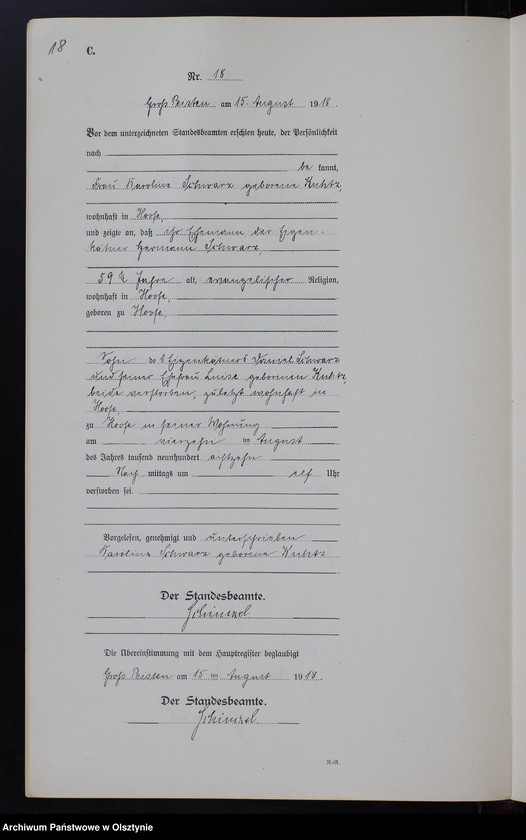 18
C.
Nr. 18
Groß Peisten am 15. August 1918.
Vor dem unterzeichneten Standesbeamten erschien heute, der Persönlichkeit
nach
be kannt,
Frau Karoline Schwarz geborene Kuhtz,
wohnhaft in Hoofe,
und zeigte an, daß ihr Ehemann der Eigen-
kätner Hermann Schwarz,
59 ½ Jahre alt, evangelischer Religion,
wohnhaft in Hoofe,
geboren zu Hoofe,
Sohn des Eigenkätners Daniel Schwarz
und seiner Ehefrau Luise geborenen Kuhtz,
beide verstorben, zuletzt wohnhaft in
Hoofe,
zu Hoofe in seiner Wohnung
am vierzehn ten August
des Jahres tausend neunhundert achtzehn
Nach mittags um elf Uhr
verstorben sei.
Vorgelesen, genehmigt und unterschrieben
Karoline Schwarz geborene Kuhtz
Der Standesbeamte.
Schinzel.
Die Übereinstimmung mit dem Hauptregister beglaubigt
Groß Peisten am 15 ten August 1918.
Der Standesbeamte.
Schinzel.
Archiwum Państwowe w Olsztynie